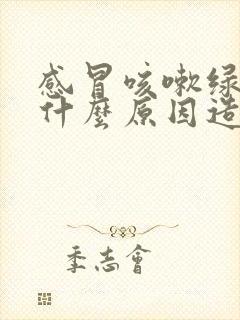 感冒咳嗽绿
什麼原因造
季志會